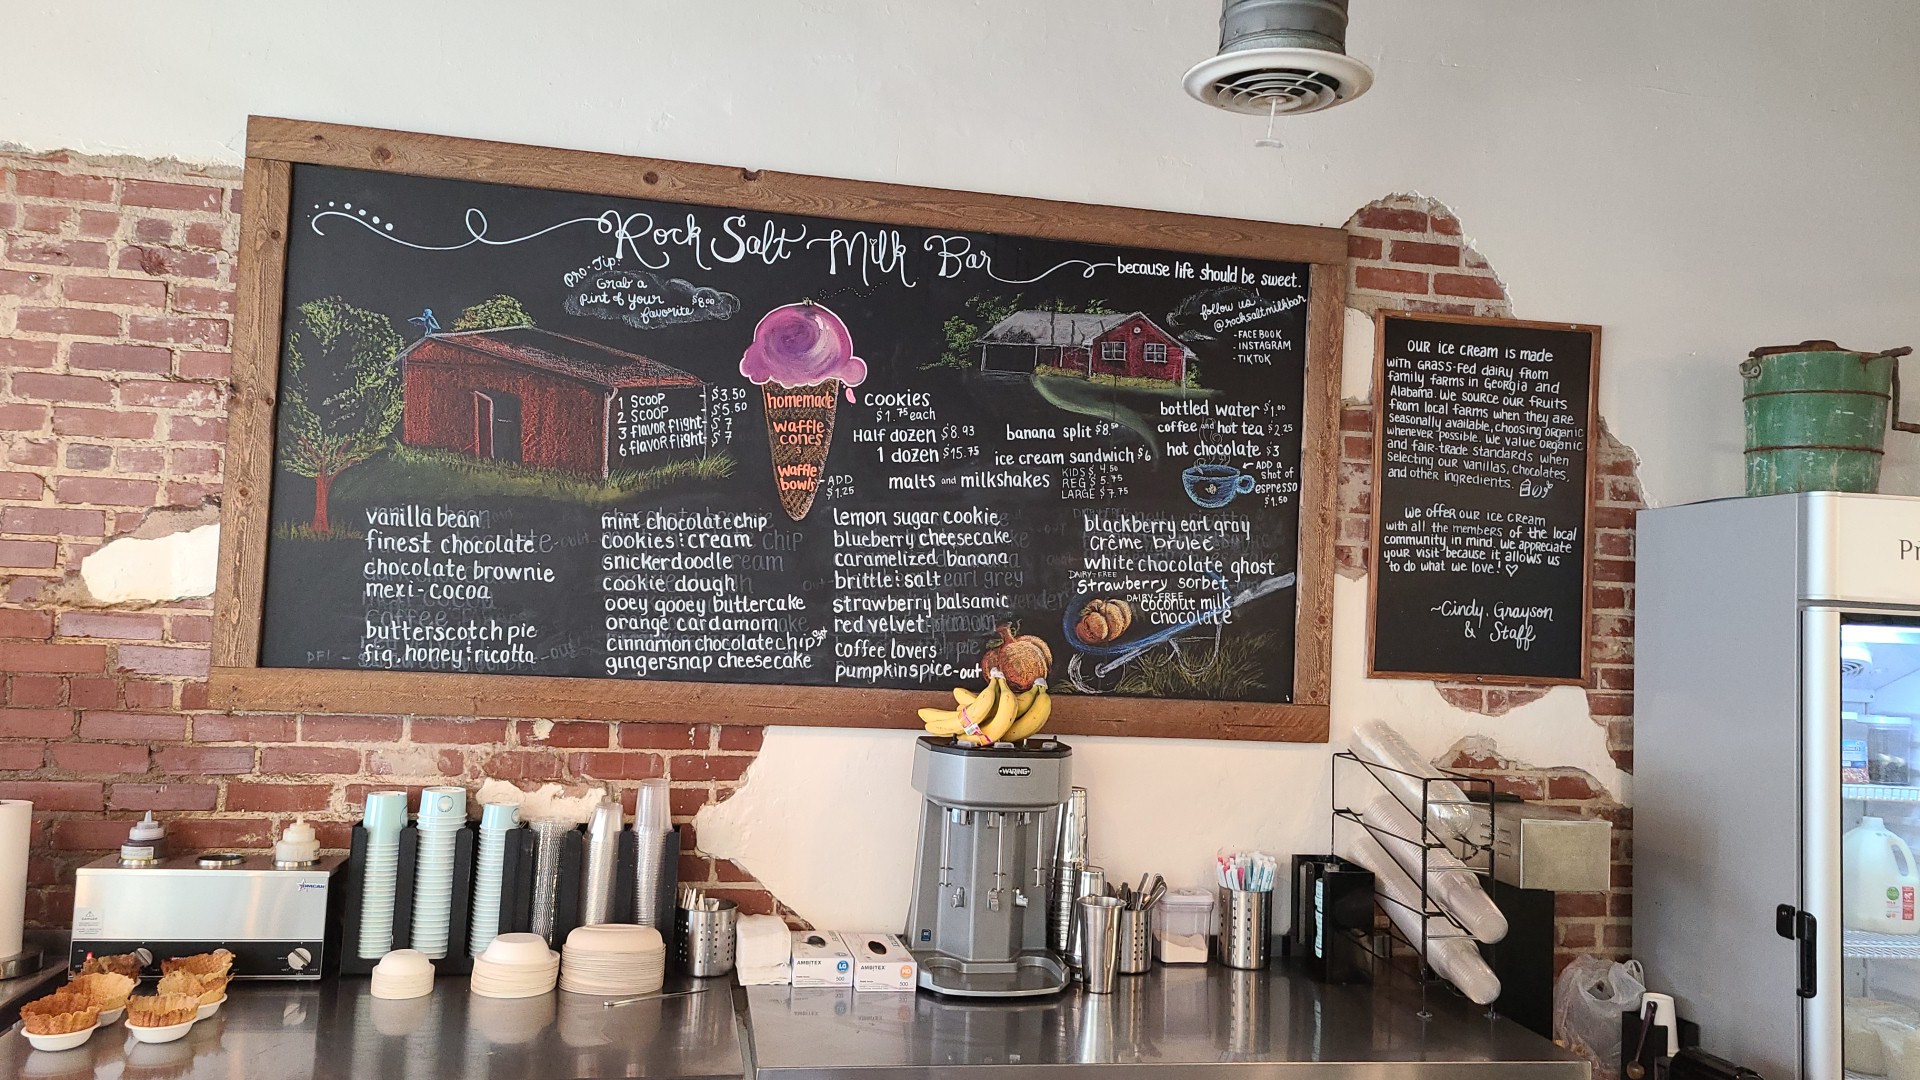 Rock Salt Milk Bar
because life should be sweet.
Pro-Tip!
Grab a
pint of your
favorite $8.00
follow us!
@rocksaltmilkbar
-FACEBOOK
-INSTAGRAM
-TIKTOK
1 SCOOP - $3.50
2 SCOOP - $5.50
3 flavor flight - $7
6 flavor flight - $7
homemade
waffle
cones
&
waffle
bowls
-ADD
$1.25
cookies
$1.75 each
Half dozen $8.93
1 dozen $15.75
banana split $8.50
ice cream sandwich $6
malts and milkshakes
KIDS $4.50
REG $5.75
LARGE $7.75
bottled water $1.00
coffee and hot tea $2.25
hot chocolate $3
ADD a
shot of
espresso
$1.50
vanilla bean
finest chocolate
chocolate brownie
mexi-cocoa
butterscotch pie
fig, honey & ricotta
mint chocolate chip
cookies & cream
snickerdoodle
cookie dough
ooey gooey buttercake
orange cardamom
cinnamon chocolate chip out
gingersnap cheesecake
lemon sugar cookie
blueberry cheesecake
caramelized banana
brittle & salt
strawberry balsamic
red velvet
coffee lovers
pumpkin spice-out
blackberry earl gray
crème brulee
white chocolate ghost
DAIRY-FREE
strawberry sorbet
DAIRY-FREE
coconut milk
chocolate
OUR ICE CREAM IS MADE
WITH GRASS-FED DAIRY FROM
family farms in Georgia and
Alabama. We source our fruits
from local farms when they are
seasonally available, choosing organic
whenever possible. We value organic
and fair-trade standards when
selecting our vanillas, chocolates,
and other ingredients.
We offer our ice cream
with all the members of the local
community in mind. We appreciate
your visit because it allows us
to do what we love! ♡
~Cindy Grayson
& Staff
WARING
AMBITEX
AMBITEX
Pr